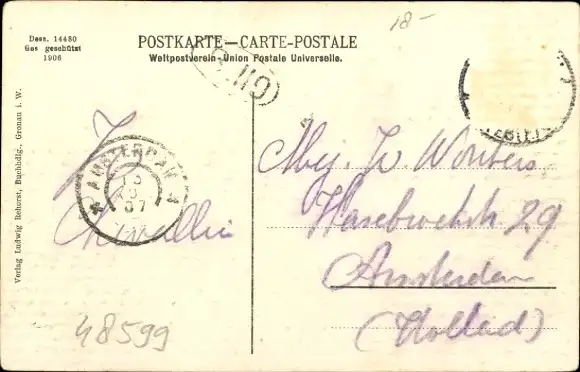 Dess. 14480
Ges geschützt
1906
18-
POSTKARTE—CARTE-POSTALE
Weltpostverein-Union Postale Universelle.
Verlag Ludwig Rehorst, Buchhdlg., Gronau i. W.
AMSTERDAM
07
Mej. W Wouters
29
Amsterdam
(Holland)
48599